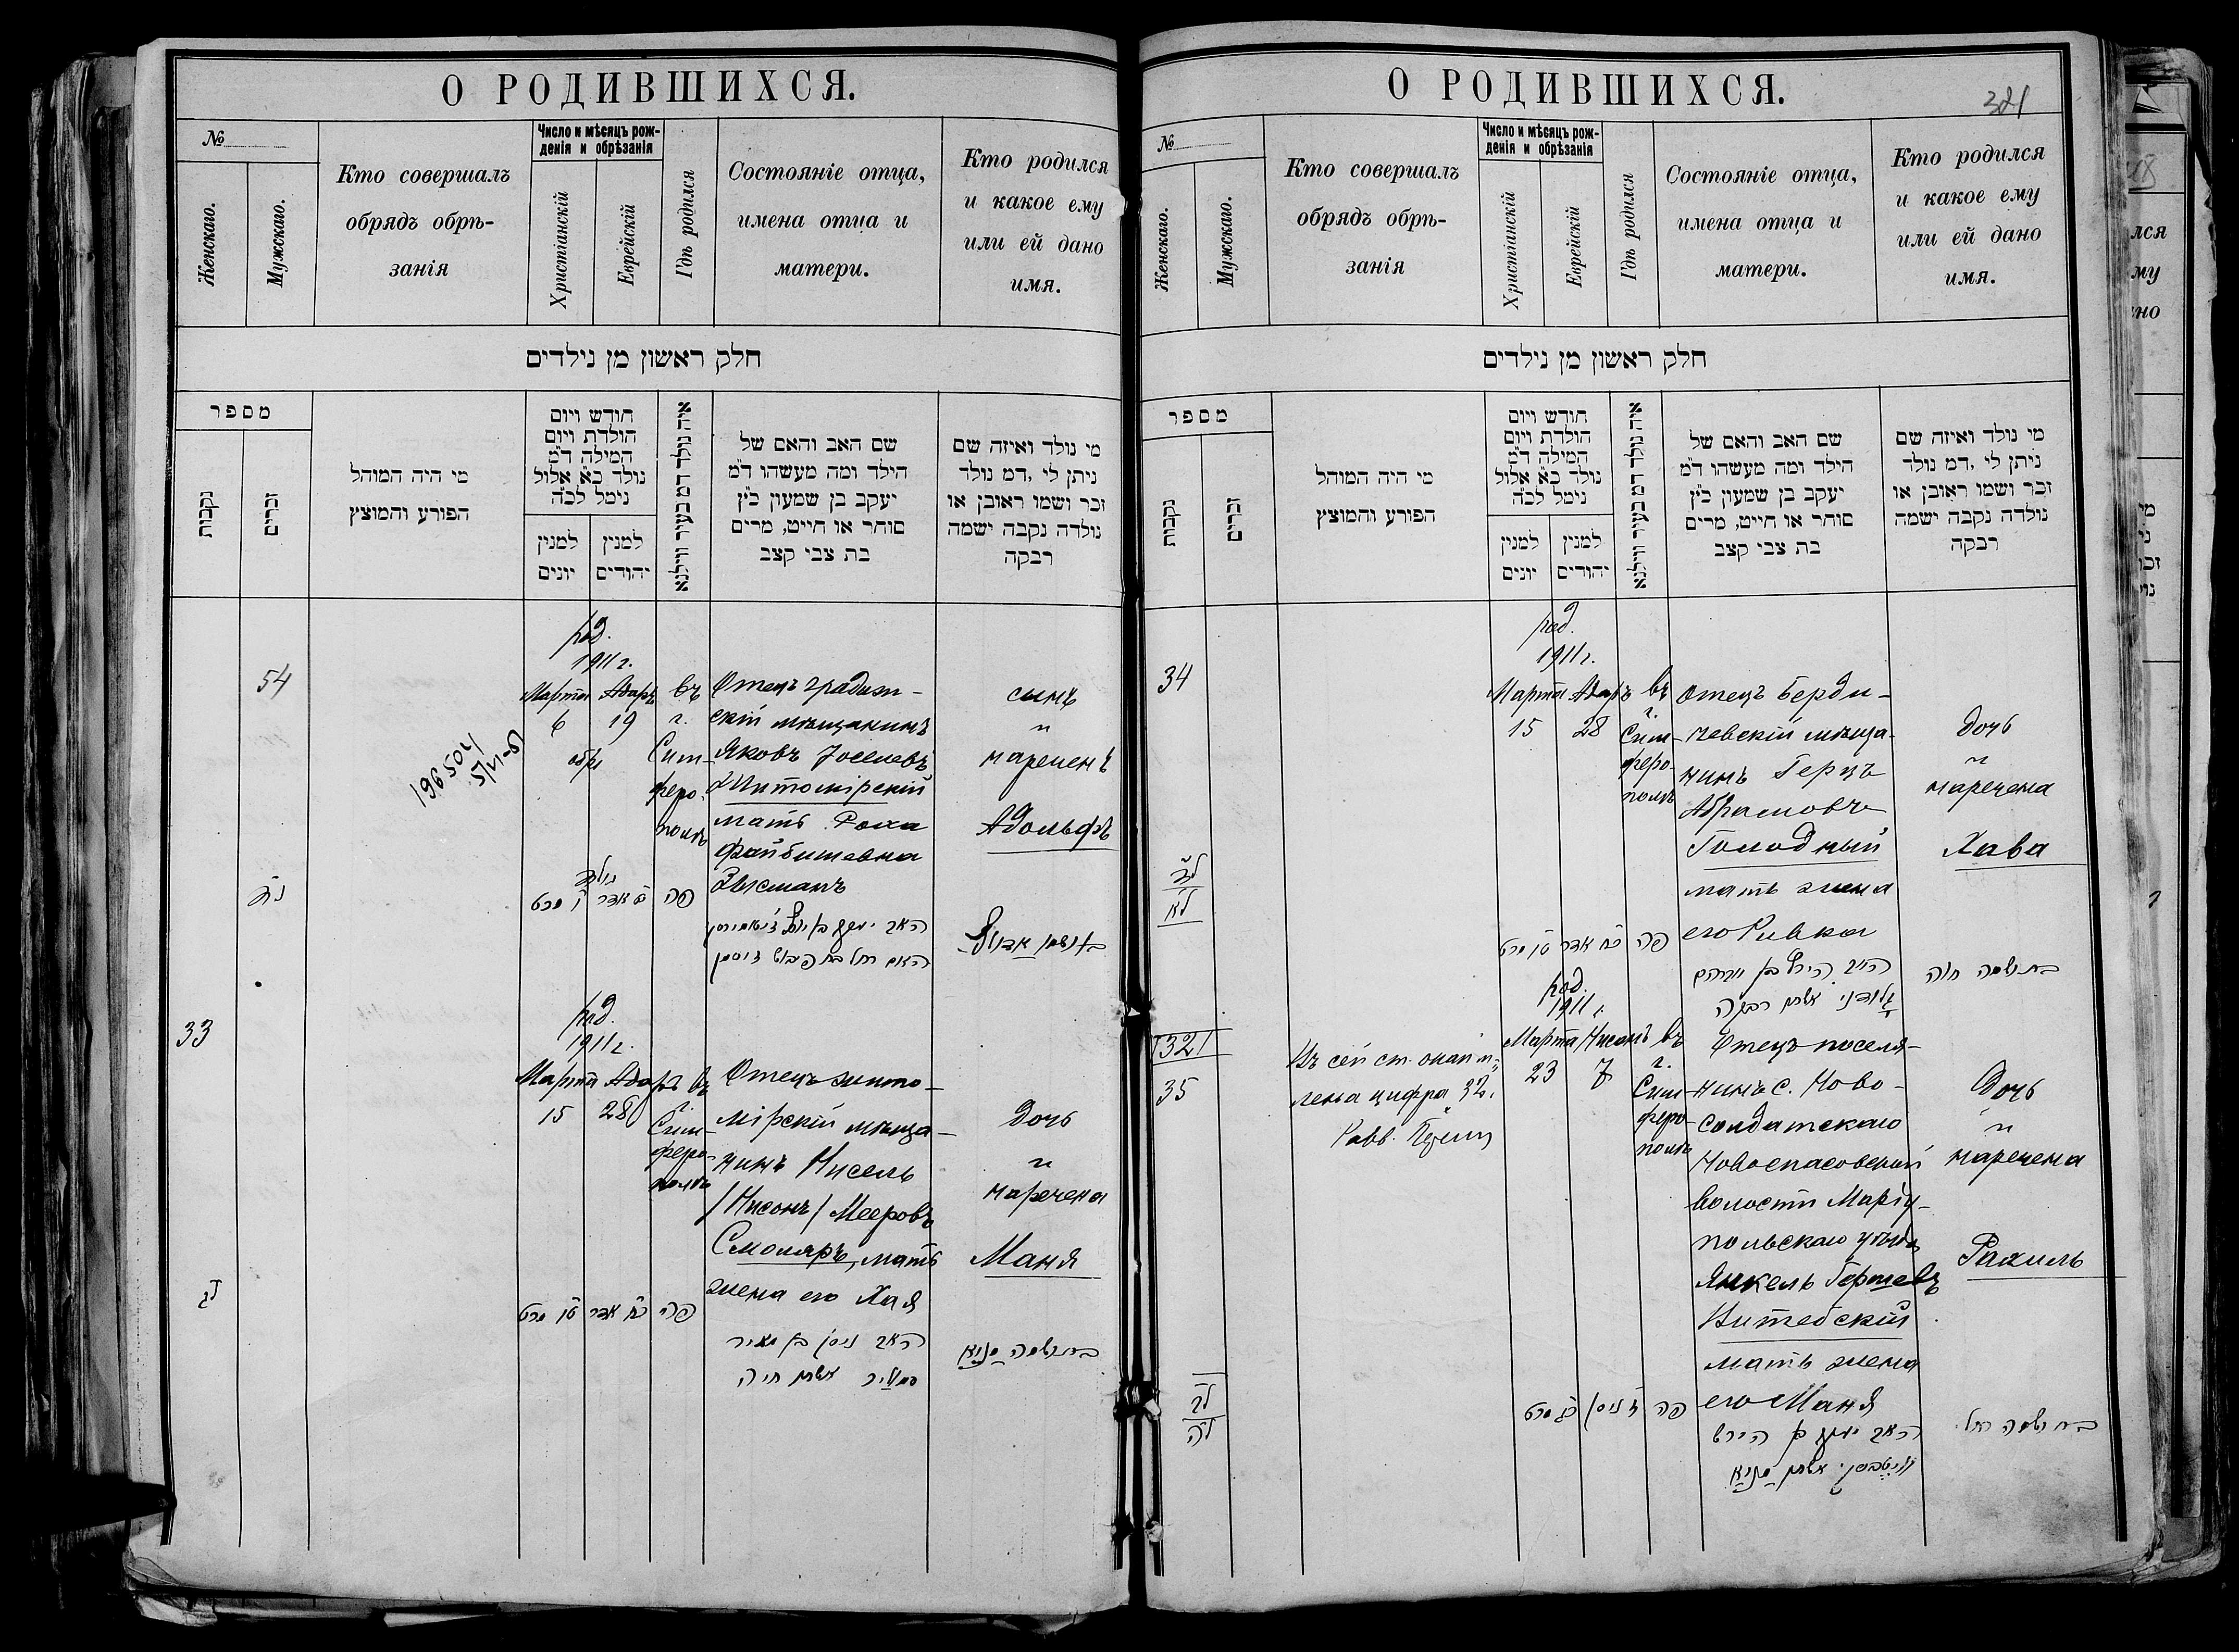 О РОДИВШИХСЯ.
№
Женскаго.
Мужскаго.
Кто совершалъ
обрядъ обрѣ-
занія
Число и мѣсяцъ рож-
денія и обрѣзанія
Христіанскій
Еврейскій
Гдѣ родился
Состояніе отца,
имена отца и
матери.
Кто родился
и какое ему
или ей дано
имя.
חלק ראשון מן נילדים
מספר
נקבות
זכרים
מי היה המוהל
הפורע והמוצץ
חודש ויום
הולדת ויום
המילה ד"מ
נולד כ"א אלול
נימל לכ"ה
למנין
יונים
למנין
יהודים
איה נולד דמ בעיר ווילנא
שם האב והאם של
הילד ומה מעשהו ד"מ
יעקב בן שמעון כ"ץ
סוחר או חייט, מרים
בת צבי קצב
מי נולד ואיזה שם
ניתן לי, דמ נולד
זכר ושמו ראובן או
נולדה נקבה ישמה
רבקה
54
196504
5/VI-51
род.
1911 г.
Марта Адаръ
6 19
обр
въ
г.
Сим-
феро-
полѣ
Отецъ градиж-
скій мѣщанинъ
Яковъ Іосіевъ
Житомірскій
мать Роха
Файбишевна
Зюсманъ
сынъ
и
нареченъ
Адольфъ
נד
נולד
ו מרט
אדר
פה
33
род.
1911 г.
Марта Адаръ
15 28
въ
г.
Сим-
феро-
полѣ
Отецъ жито-
мірскій мѣща-
нинъ Нисель
/Нисонъ/ Мееровъ
Смоляръ, мать
жена его Хая
האב ניסן בן מאיר
סמאליר אשתו חיה
дочь
и
наречена
Маня
בת ושמה מניא
לג
טו מרט
כח אדר
פה
О РОДИВШИХСЯ.
321
№
Женскаго.
Мужскаго.
Кто совершалъ
обрядъ обрѣ-
занія
Число и мѣсяцъ рож-
денія и обрѣзанія
Христіанскій
Еврейскій
Гдѣ родился
Состояніе отца,
имена отца и
матери.
Кто родился
и какое ему
или ей дано
имя.
חלק ראשון מן נילדים
מספר
נקבות
זכרים
מי היה המוהל
הפורע והמוצץ
חודש ויום
הולדת ויום
המילה ד"מ
נולד כ"א אלול
נימל לכ"ה
למנין
יונים
למנין
יהודים
איה נולד דמ בעיר ווילנא
שם האב והאם של
הילד ומה מעשהו ד"מ
יעקב בן שמעון כ"ץ
סוחר או חייט, מרים
בת צבי קצב
מי נולד ואיזה שם
ניתן לי, דמ נולד
זכר ושמו ראובן או
נולדה נקבה ישמה
רבקה
34
род.
1911 г.
Марта Адаръ
15 28
въ
г.
Сим-
феро-
полѣ
Отецъ Берди-
чевскій мѣща-
нинъ Герцъ
Абрамовъ
Голодный
мать жена
его Ривка
дочь
и
наречена
Хава
טו מרט
כח אדר
פה
בת ושמה חוה
|32|
35
Въ сей ст.
лена цифра „32“.
Равв.
род.
1911 г.
Марта Нисанъ
23 7
въ
г.
Сим-
феро-
полѣ
Отецъ поселя-
нинъ с. Ново-
солдатскаго
Новоспасовской
волости Маріу-
польскаго уѣзда
Янкель Гершевъ
Витебскій
мать жена
его Маня
дочь
и
наречена
Рахиль
לה
כג מרט
ז ניסן
פה
האב יעקב בן הירש
וויטבסקי אשתו מניא
בת ושמה רחל